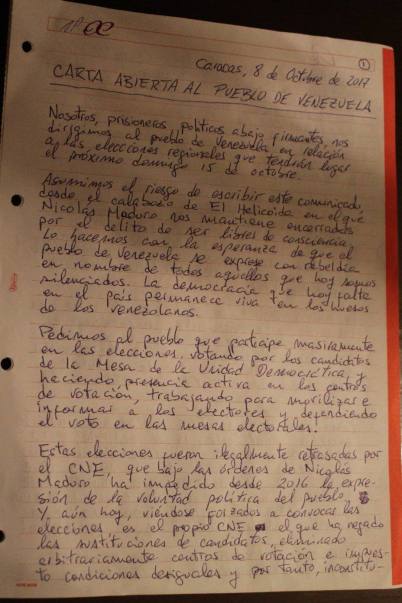 1
Caracas, 8 de Octubre de 2017
CARTA ABIERTA AL PUEBLO DE VENEZUELA
Nosotros, prisioneros políticos abajo firmantes, nos
dirigimos al pueblo de Venezuela en relación
a las elecciones regionales que tendrán lugar
el próximo domingo 15 de octubre.
Asumimos el riesgo de escribir este comunicado
desde el calabozo de El Helicoide en el que
Nicolás Maduro nos mantiene encerrados
por el delito de ser libres de consciencia.
Lo hacemos con la esperanza de que el
pueblo de Venezuela se exprese con rebeldía
en nombre de todos aquellos que hoy somos
silenciados. La democracia que hoy falta
en el país permanece viva en los huesos
de los venezolanos.
Pedimos al pueblo que participe masivamente
en las elecciones, votando por los candidatos
de la Mesa de la Unidad Democrática, y
haciendo presencia activa en los centros
de votación, trabajando para movilizar e
informar a los electores y defendiendo
el voto en las mesas electorales.
Estas elecciones fueron ilegalmente retrasadas por
el CNE, que bajo las órdenes de Nicolás
Maduro ha impedido desde 2016 la expre-
sión de la voluntad política del pueblo.
Y, aún hoy, viéndose forzados a convocar las
elecciones, es el propio CNE el que ha negado
las sustituciones de candidatos, eliminado
arbitrariamente centros de votación e impues-
to condiciones desiguales y por tanto, inconstitu-